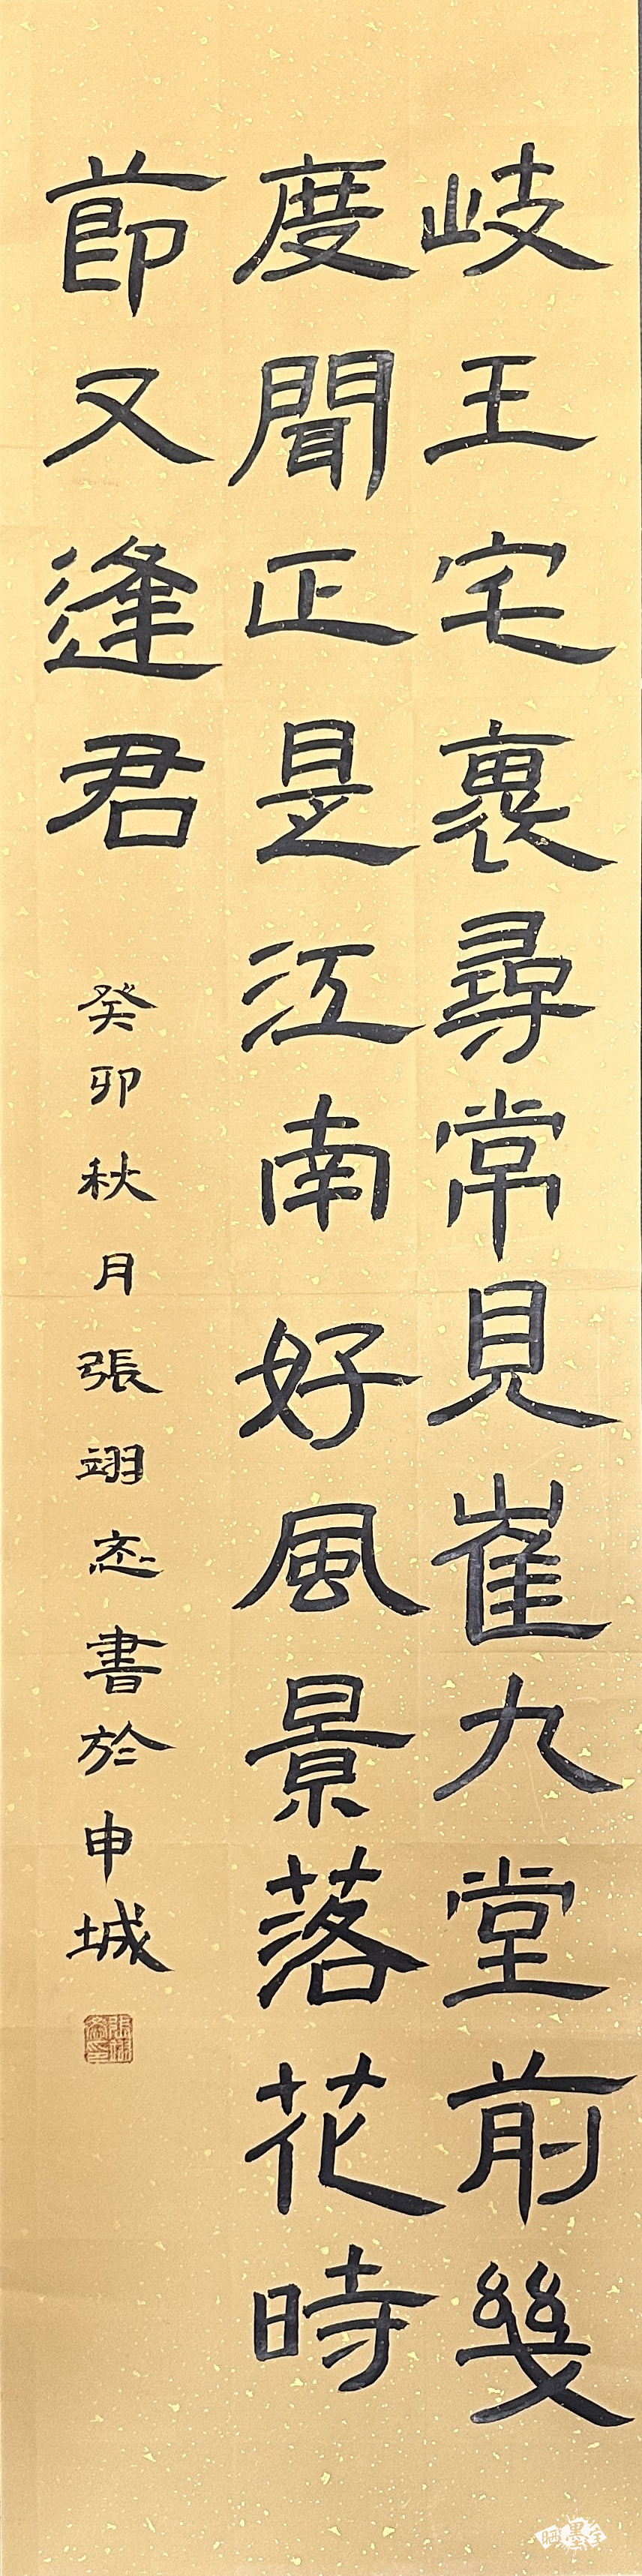 岐王宅裏尋常見崔九堂前幾
度聞正是江南好風景落花時
節又逢君
癸卯秋月張翊忞書於申城
晒墨宝